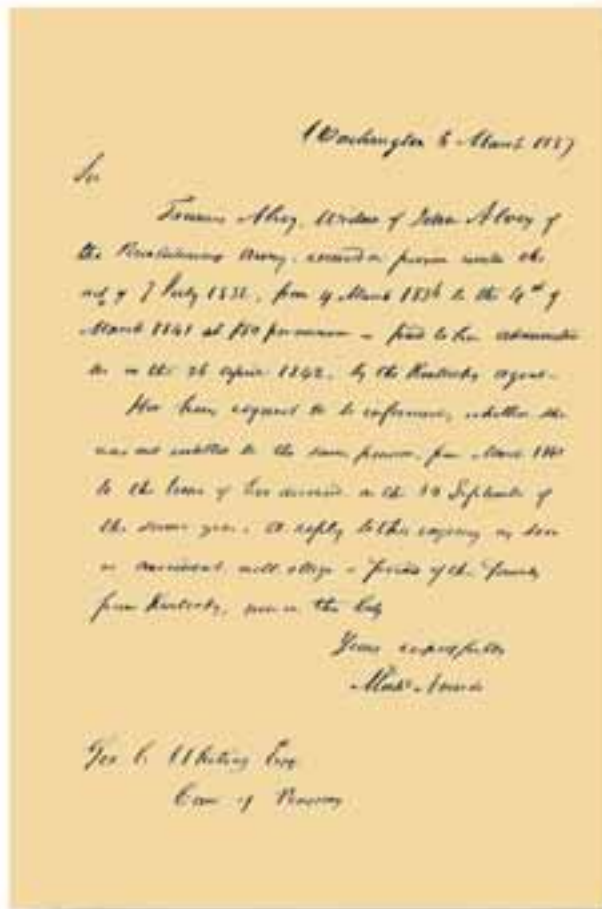 Washington 6 March 1857
Sir
Frances Alvey, Widow of John Alvey of
the Revolutionary Army, received a pension under the
act of 7 July 1838, from 4 March 1836 to the 4th of
March 1841 at $80 per annum - paid to her administrator
on the 26 April 1842, by the Kentucky agent.
Her heirs request to be informed, whether she
was not entitled to the same pension, from March 1841
to the time of her on the 10 September of
the same year. A reply to this enquiry as soon
as convenient will oblige a friend of the family
from Kentucky, now in this City
Yours respectfully
Geo C. Whiting Esq
Com of Pensions